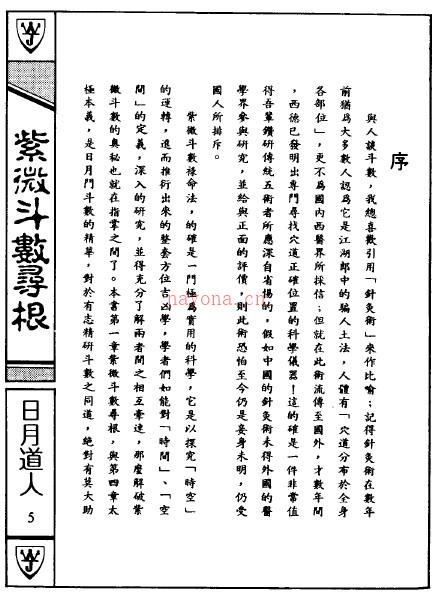 序
與人談斗數，我總喜歡引用「針灸術」來作比喻；記得針灸術在數年
前猶爲大多數人認爲它是江湖郎中的騙人土法，人體有「穴道分布於全身
各部位」，更不爲國內西醫界所採信；但就在此術流傳至國外，才數年間
，西德已發明出專門尋找穴道正確位置的科學儀器！這的確是一件非常值
得吾輩鑽研傳統五術者所應深自省惕的，假如中國的針灸術未得外國的醫
學界參與研究，並給與正面的評價，則此術恐怕至今仍是妾身未明，仍受
國人所排斥。
紫微斗數祿命法，的確是一門極爲實用的科學，它是以探究「時空」
的運轉，進而推衍出來的整套方位吉凶學，學者們如能對「時間」、「空
間」的定義，深入的研究，並得充分了解兩者間之相互牽連，那麼解破紫
微斗數的奧秘也就在指掌之間了。本書第一章紫微斗數尋根，與第四章太
極本義，是日月門斗數的精華，對於有志精研斗數之同道，絕對有莫大助
紫微斗數尋根
日月道人
5
nayona.cn